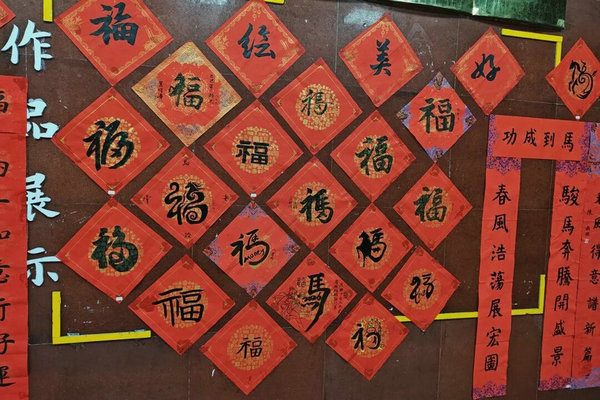 作品展示
如意行
福
绘
美
好
福
福
福
福
福
福
福
福
福
福
福
福
馬
福
福
馬到成功
駿馬奔騰開盛景
春風浩蕩展宏圖
風得意譜新篇